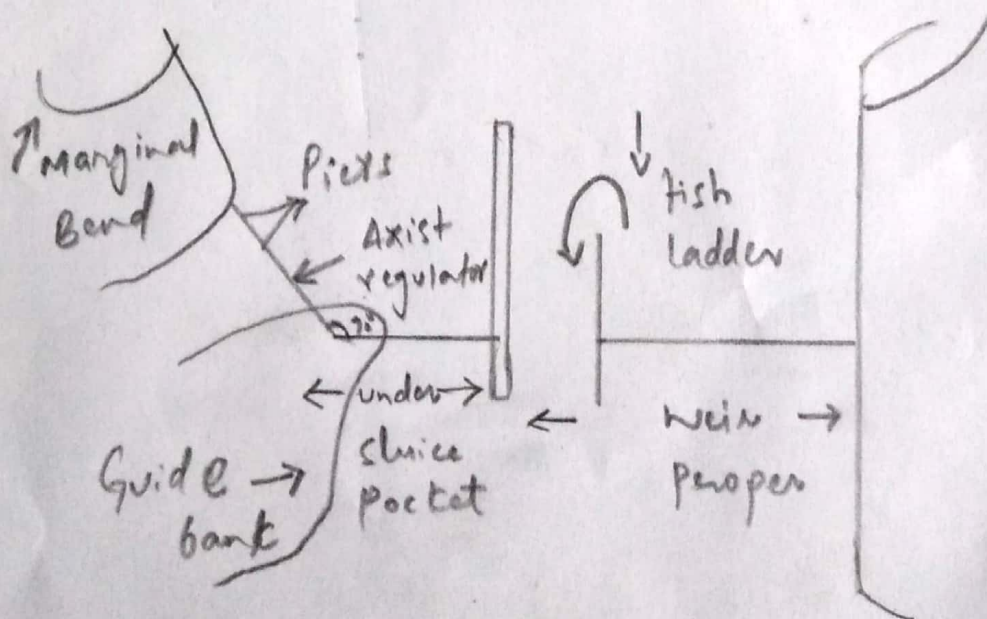 Marginal
Bend
Piers
Axist
regulator
fish
ladder
under
sluice
pocket
Guide
bank
weir
peroper